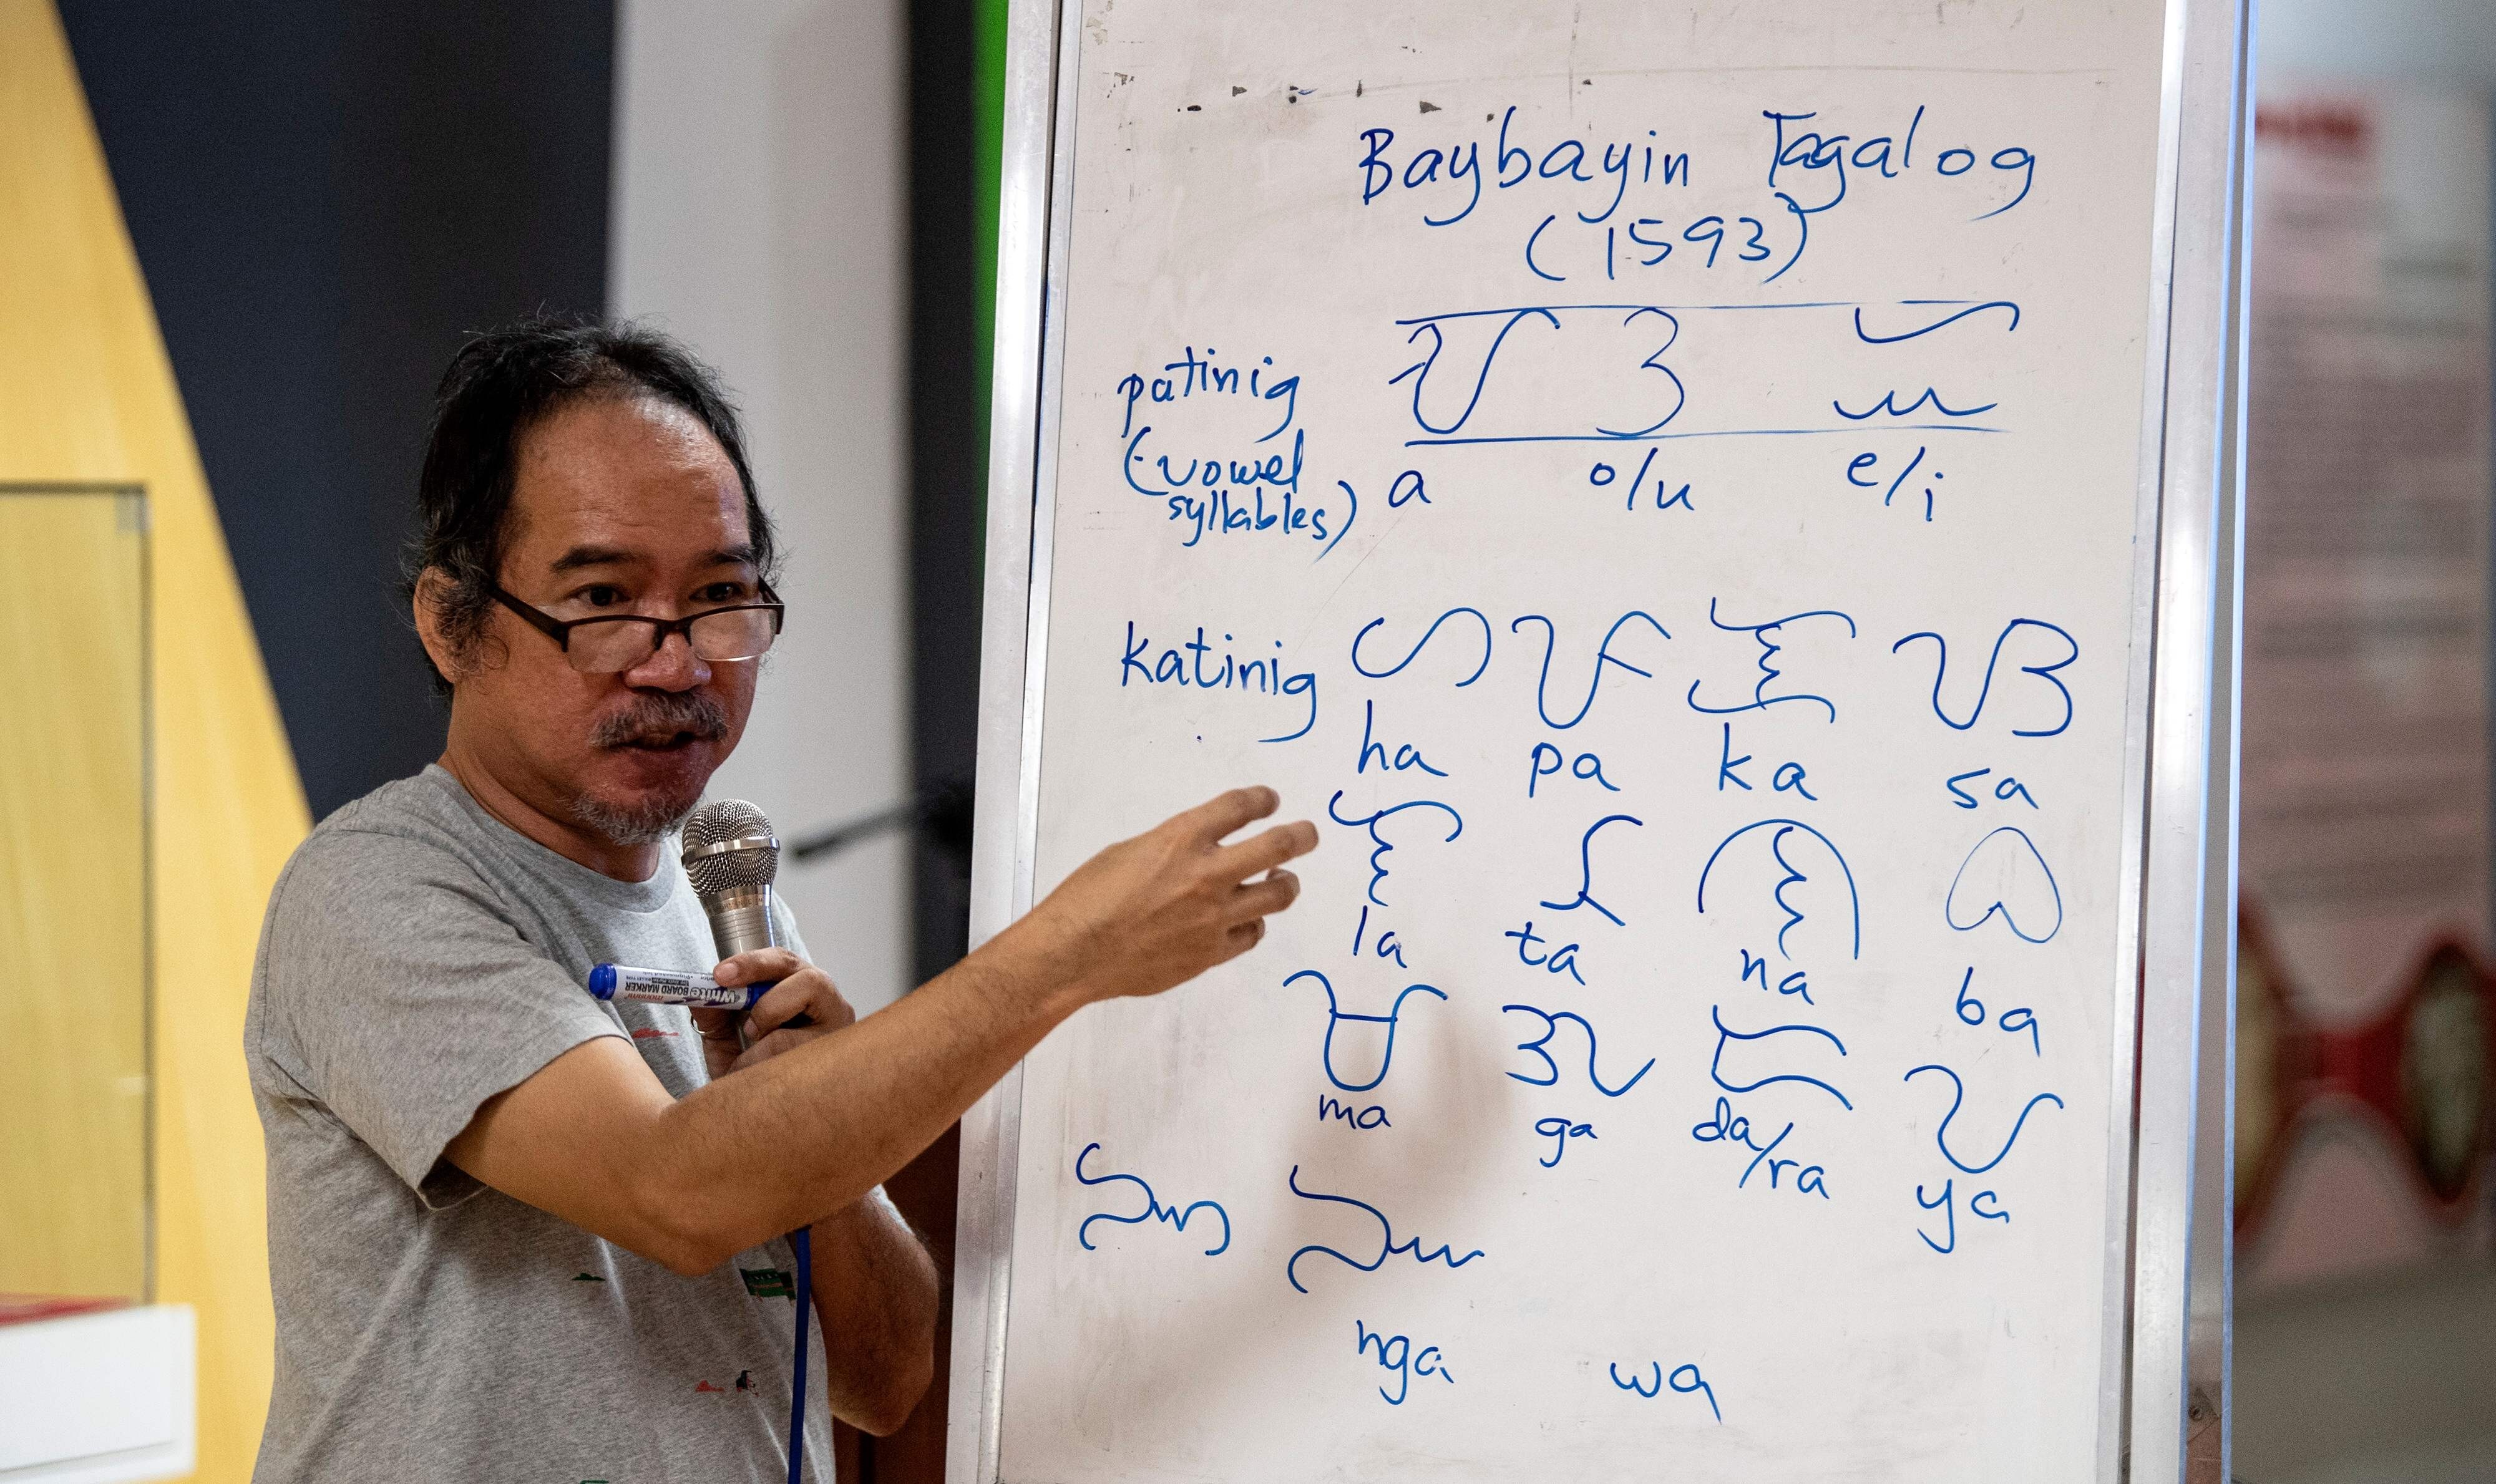 Baybayin Tagalog
(1593)
ᜀ ᜂ ᜁ
patinig
(vowel
syllables)
a o/u e/i
katinig
ᜑ ᜉ ᜃ ᜐ
ha pa ka sa
ᜎ ᜆ ᜈ ᜊ
la ta na ba
ᜋ ᜄ ᜇ ᜌ
ma ga da/ra ya
ᜅ ᜅ
nga wa
monami
White BOARD MARKER